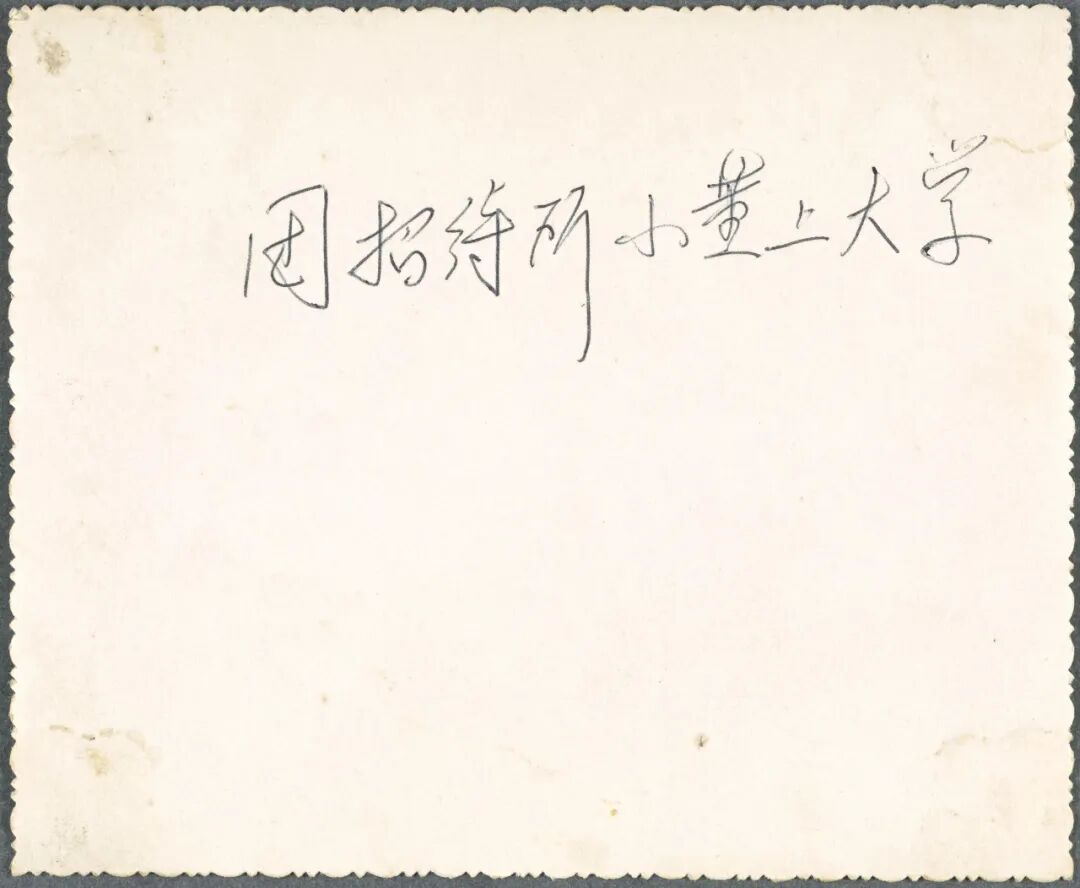 团招待所小董上大学